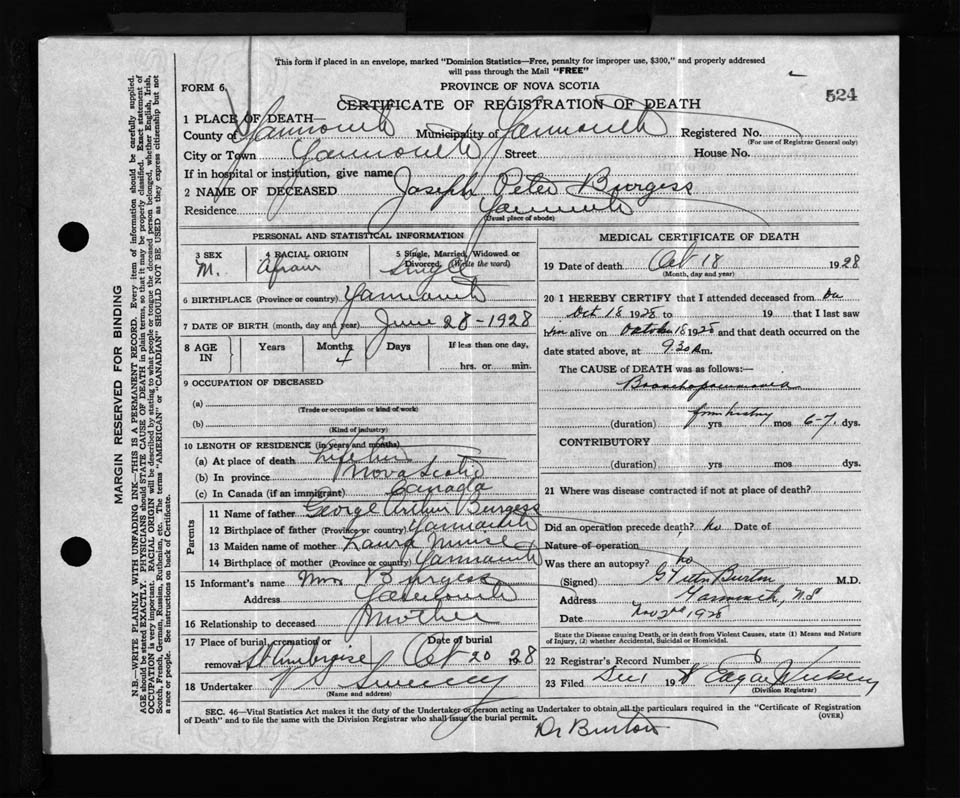 This form if placed in an envelope, marked "Dominion Statistics—Free, penalty for improper use, $300," and properly addressed
will pass through the Mail "FREE"
FORM 6
PROVINCE OF NOVA SCOTIA
524
CERTIFICATE OF REGISTRATION OF DEATH
1 PLACE OF DEATH—
County of Yarmouth Municipality of Yarmouth Registered No.
(For use of Registrar General only)
City or Town Yarmouth Street House No.
If in hospital or institution, give name
2 NAME OF DECEASED Joseph Peter Burgess
Residence Yarmouth
(Usual place of abode)
PERSONAL AND STATISTICAL INFORMATION
3 SEX 4 RACIAL ORIGIN 5 Single, Married, Widowed or
Divorced, (Write the word)
M. Single
6 BIRTHPLACE (Province or country) Yarmouth
7 DATE OF BIRTH (month, day and year) June 28-1928
8 AGE IN Years Months 4 Days If less than one day,
hrs. or min.
9 OCCUPATION OF DECEASED
(a)
(Trade or occupation or kind of work)
(b)
(Kind of industry)
10 LENGTH OF RESIDENCE (in years and months)
(a) At place of death Life time
(b) In province Nova Scotia
(c) In Canada (if an immigrant) Canada
Parents
11 Name of father George Arthur Burgess
12 Birthplace of father (Province or country) Yarmouth
13 Maiden name of mother Laura Muise
14 Birthplace of mother (Province or country) Yarmouth
15 Informant's name Mrs Burgess
Address Yarmouth
16 Relationship to deceased Mother
17 Place of burial, cremation or Date of burial
removal St Ambroise Oct 20 1928
18 Undertaker V S Sweeney
(Name and address)
MEDICAL CERTIFICATE OF DEATH
19 Date of death Oct 18 1928
(Month, day and year)
20 I HEREBY CERTIFY that I attended deceased from
Oct 18 1928 to 19 that I last saw
him alive on October 18 1928 and that death occurred on the
date stated above, at 9 30 A m.
The CAUSE OF DEATH was as follows:—
Bronchopneumonia
from history
(duration) yrs mos 6-7 dys.
CONTRIBUTORY
(duration) yrs mos dys.
21 Where was disease contracted if not at place of death?
Did an operation precede death? no Date of
Nature of operation
Was there an autopsy? no
(Signed) Burton M.D.
Address Yarmouth, N.S
Date Nov 2nd 1928
State the Disease causing Death, or in death from Violent Causes, state (1) Means and Nature
of Injury, (2) whether Accidental, Suicidal or Homicidal.
22 Registrar's Record Number 6
23 Filed Dec 1 1928 Edgar
(Division Registrar)
SEC. 46—Vital Statistics Act makes it the duty of the Undertaker or person acting as Undertaker to obtain all the particulars required in the "Certificate of Registration
of Death" and to file the same with the Division Registrar who shall issue the burial permit. (OVER)
Dr Burton
MARGIN RESERVED FOR BINDING
N.B.—WRITE PLAINLY WITH UNFADING INK—THIS IS A PERMANENT RECORD. Every item of information should be carefully supplied.
AGE should be stated EXACTLY. PHYSICIANS should STATE CAUSE OF DEATH in plain terms, so that it may be properly classified. Exact statement of
OCCUPATION is very important. RACIAL ORIGIN will be described by stating to what people or tongue the deceased person belonged, whether English, Irish,
Scotch, French, German, Russian, Ruthenian, etc. The terms "AMERICAN" or "CANADIAN" SHOULD NOT BE USED as they express citizenship but not
a race or people. See instructions on back of Certificate.